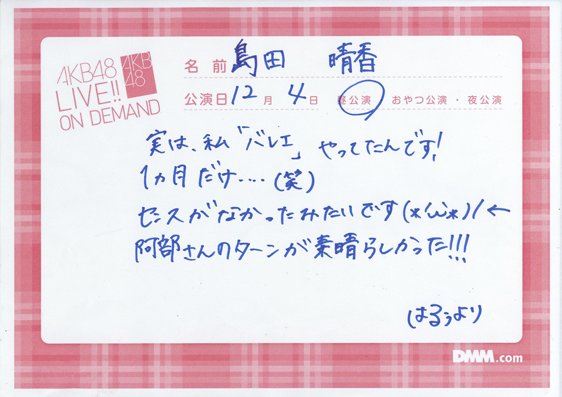 AKB48
LIVE!!
ON DEMAND
AKB
48
名前 島田 晴香
公演日 12月 4日 昼公演 おやつ公演・夜公演
実は、私「バレエ」やってたんです!
1ヵ月だけ‥‥(笑)
センスがなかったみたいです(*´ω`*)/←
阿部さんのターンが素晴らしかった!!!
はるぅより
DMM.com